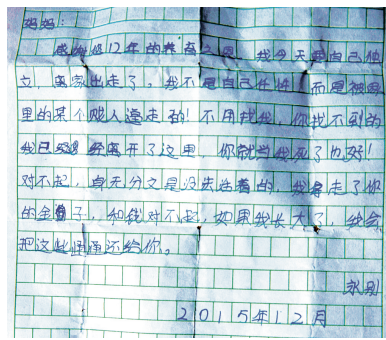 妈妈:
感谢您12年的养育之恩,我今天要自己独
立,离家出走了,我不是自己任性,而是被家
里的某个贱人逼走的!不用找我,你找不到的
我已经离开了这里,你就当我死了也好!
对不起,身无分文是没法活着的,我拿走了你
的金镯子,和钱对不起,如果我长大了,我会
把这些通通还给你。
永别
2015年12月